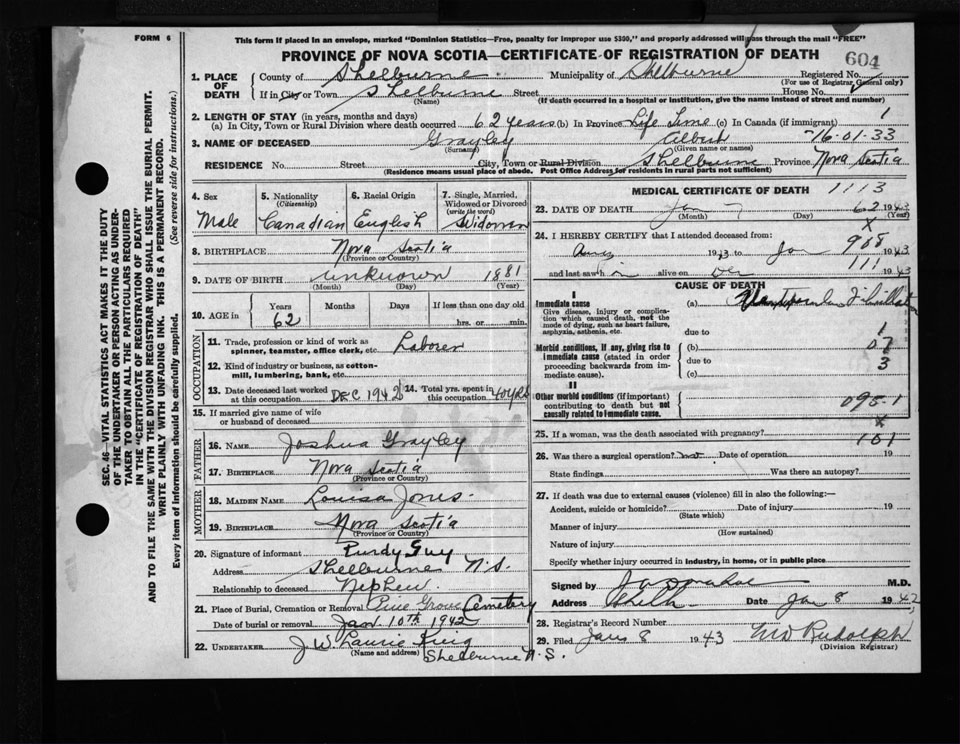 FORM 6
This form if placed in an envelope, marked "Dominion Statistics—Free, penalty for improper use $300," and properly addressed will pass through the mail "FREE"
PROVINCE OF NOVA SCOTIA—CERTIFICATE OF REGISTRATION OF DEATH
604
1. PLACE OF DEATH County of Shelburne Municipality of Shelburne Registered No.
(For use of Registrar General only)
If in City or Town Shelburne Street House No.
(Name) (If death occurred in a hospital or institution, give the name instead of street and number)
2. LENGTH OF STAY (in years, months and days)
(a) In City, Town or Rural Division where death occurred 62 years (b) In Province Life Time (c) In Canada (if immigrant) 1
3. NAME OF DECEASED Grayley Albert 16-01-33
(Surname) (Given name or names)
RESIDENCE No. Street City, Town or Rural Division Shelburne Province Nova Scotia
(Residence means usual place of abode. Post Office Address for residents in rural parts not sufficient)
4. Sex Male
5. Nationality (Citizenship) Canadian
6. Racial Origin English
7. Single, Married, Widowed or Divorced (write the word) Widower
8. BIRTHPLACE Nova Scotia
(Province or Country)
9. DATE OF BIRTH unknown 1881
(Month) (Day) (Year)
10. AGE in Years Months Days If less than one day old
62 hrs. or min.
OCCUPATION
11. Trade, profession or kind of work as spinner, teamster, office clerk, etc. Laborer
12. Kind of industry or business, as cotton-mill, lumbering, bank, etc.
13. Date deceased last worked at this occupation Dec 1942
14. Total yrs. spent in this occupation 40 yrs
15. If married give name of wife or husband of deceased
FATHER
16. NAME Joshua Grayley
17. BIRTHPLACE Nova Scotia
(Province or Country)
MOTHER
18. MAIDEN NAME Louisa Jones
19. BIRTHPLACE Nova Scotia
(Province or Country)
20. Signature of informant Purdy Guy
Address Shelburne N.S.
Relationship to deceased Nephew.
21. Place of Burial, Cremation or Removal Pine Grove Cemetery
Date of burial or removal Jan 10th 1942
22. UNDERTAKER J. W. Laurie King
(Name and address) Shelburne N.S.
MEDICAL CERTIFICATE OF DEATH 1113
23. DATE OF DEATH Jan 7 62 1943
(Month) (Day) (Year)
X
24. I HEREBY CERTIFY that I attended deceased from:
19 to Jan 908 1943
and last saw h alive on 111 1943
CAUSE OF DEATH
I
Immediate cause (a)
Give disease, injury or complication which caused death, not the mode of dying, such as heart failure, asphyxia, asthenia, etc.
due to 1
Morbid conditions, if any, giving rise to immediate cause (stated in order proceeding backwards from immediate cause). (b) 07
due to 3
(c)
II
Other morbid conditions (if important) contributing to death but not causally related to immediate cause. 095.1
x
25. If a woman, was the death associated with pregnancy? 101
26. Was there a surgical operation? no Date of operation 19
State findings Was there an autopsy?
27. If death was due to external causes (violence) fill in also the following:—
Accident, suicide or homicide? Date of injury 19
(State which)
Manner of injury
(How sustained)
Nature of injury
Specify whether injury occurred in industry, in home, or in public place
Signed by M.D.
Address Shelb Date Jan 8 194
28. Registrar's Record Number
29. Filed Jan 8 1943 Rudolph
(Division Registrar)
SEC. 46—VITAL STATISTICS ACT MAKES IT THE DUTY
OF THE UNDERTAKER OR PERSON ACTING AS UNDER-
TAKER TO OBTAIN ALL THE PARTICULARS REQUIRED
IN THE "CERTIFICATE OF REGISTRATION OF DEATH"
AND TO FILE THE SAME WITH THE DIVISION REGISTRAR WHO SHALL ISSUE THE BURIAL PERMIT.
WRITE PLAINLY WITH UNFADING INK. THIS IS A PERMANENT RECORD.
Every item of information should be carefully supplied. (See reverse side for instructions.)